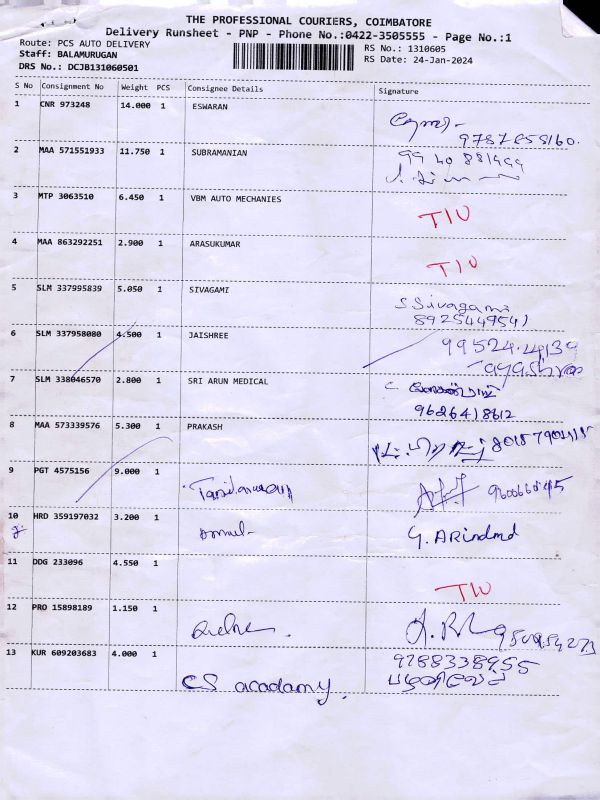 THE PROFESSIONAL COURIERS, COIMBATORE
Delivery Runsheet - PNP - Phone No.:0422-3505555 - Page No.:1
Route: PCS AUTO DELIVERY RS No.: 1310605
Staff: BALAMURUGAN RS Date: 24-Jan-2024
DRS No.: DCJB131060501
S No Consignment No Weight PCS Consignee Details Signature
1 CNR 973248 14.000 1 ESWARAN
2 MAA 571551933 11.750 1 SUBRAMANIAN
3 MTP 3063510 6.450 1 VBM AUTO MECHANIES
TIU
4 MAA 863292251 2.900 1 ARASUKUMAR
TIU
5 SLM 337995839 5.050 1 SIVAGAMI
S Sivagami
8925449541
6 SLM 337958080 4.500 1 JAISHREE
99524.4139
7 SLM 338046570 2.800 1 SRI ARUN MEDICAL
9626418612
8 MAA 573339576 5.300 1 PRAKASH
9 PGT 4575156 9.000 1
10 HRD 359197032 3.200 1
11 DDG 233096 4.550 1
TIU
12 PRO 15898189 1.150 1
13 KUR 609203683 4.000 1
9788338955
CS acadamy.